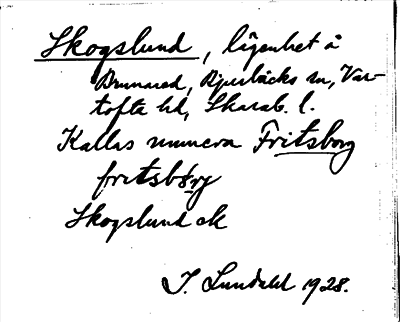 Skogslund, lägenhet å
Brunared, Bjurbäcks sn, Var-
tofta hd, Skarab. l.
Kallas numera Fritsborg
fritsbory
Skogslund ok
I. Lundahl 1928.